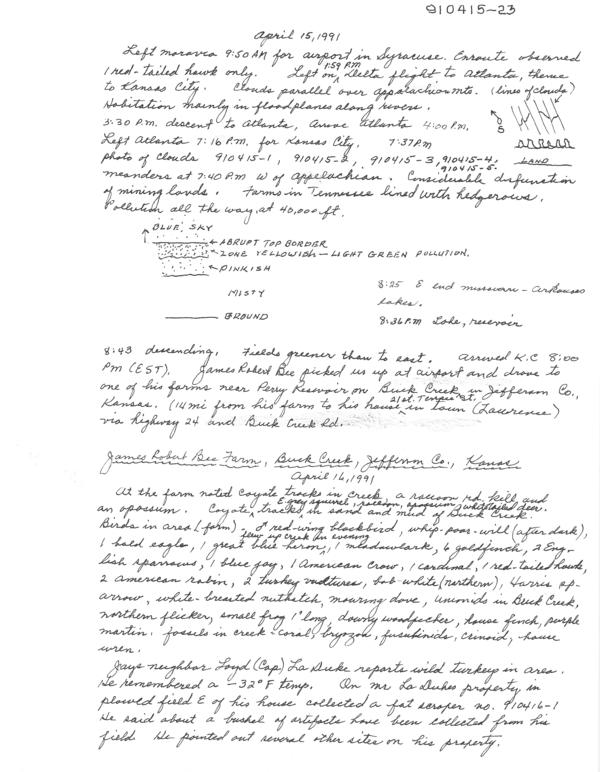 910415-23
April 15, 1991
Left moravia 9:50 AM for airport in Syracuse. Enroute observed
1 red-tailed hawk only. Left on 1:59 P.M. Delta flight to Atlanta, thence
to Kansas City. Clouds parallel over apparachian mts. (lines of clouds)
Habitation mainly in floodplanes along rivers.
3:30 P.M. descent to Atlanta, Arrove Atlanta 4:00 P.M.
S
Left Atlanta 7:16 P.M. for Kansas City. 7:37 PM
photo of clouds 910415-1, 910415-2, 910415-3, 910415-4,
910415-5.
LAND
meanders at 7:40 P.M. W of Appelachian. Considerable disfuration
of mining lands. Farms in Tennessee lined with hedgerows.
Pollution all the way at 40,000 ft.
BLUE SKY
ABRUPT TOP BORDER
ZONE YELLOWISH - LIGHT GREEN POLLUTION.
PINKISH
MISTY
GROUND
8:25 E end missouri - Arkansas
lakes.
8:36 P.M Lake, reservoir
8:43 descending. Fields greener than to east. Arrived K.C 8:00
PM (EST). James Robert Bee picked us up at airport and drove to
one of his farms near Perry Resevoir on Buck Creek in Jefferson Co.,
Kansas. (14 mi from his farm to his house 21 st. Terrace St. in town (Lawrence)
via highway 24 and Buck Creek Rd.
James Robert Bee Farm, Buck Creek, Jefferson Co., Kansas
April 16, 1991
At the farm noted Coyote tracks in creek, a raccoon rd. kill, and
an opossum. Coyote, E. grey squirrel, raccoon, opossum, whitetailed deer. tracks in sand and mud of Buck Creek.
Birds in area (farm) - ♂ red-wing blackbird, whip-poor-will (after dark),
1 bald eagle, 1 great blue heron, flew up creek in evening 1 meadowlark, 6 goldfinch, 2 Eng-
lish sparrows, 1 blue jay, 1 American Crow, 1 cardinal, 1 red-tailed hawk,
2 american robin, 2 turkey vultures, bob-white (northern), Harris sp-
arrow, white-breasted nuthatch, mouring dove, unionids in Buck Creek,
northern flicker, small frog 1" long, downy woodpecker, house finch, purple
martin. fossils in creek - coral, bryozoa, fusubinids, crinoid, house
wren.
Jays neighbor Loyd (Cap) La Duke reports wild turkey in area.
He remembered a -32°F temp. On mr La Dukes property in
plowed field E of his house collected a fat scraper no. 910416-1
He said about a bushel of artifacts have been collected from his
field. He pointed out several other sites on his property.